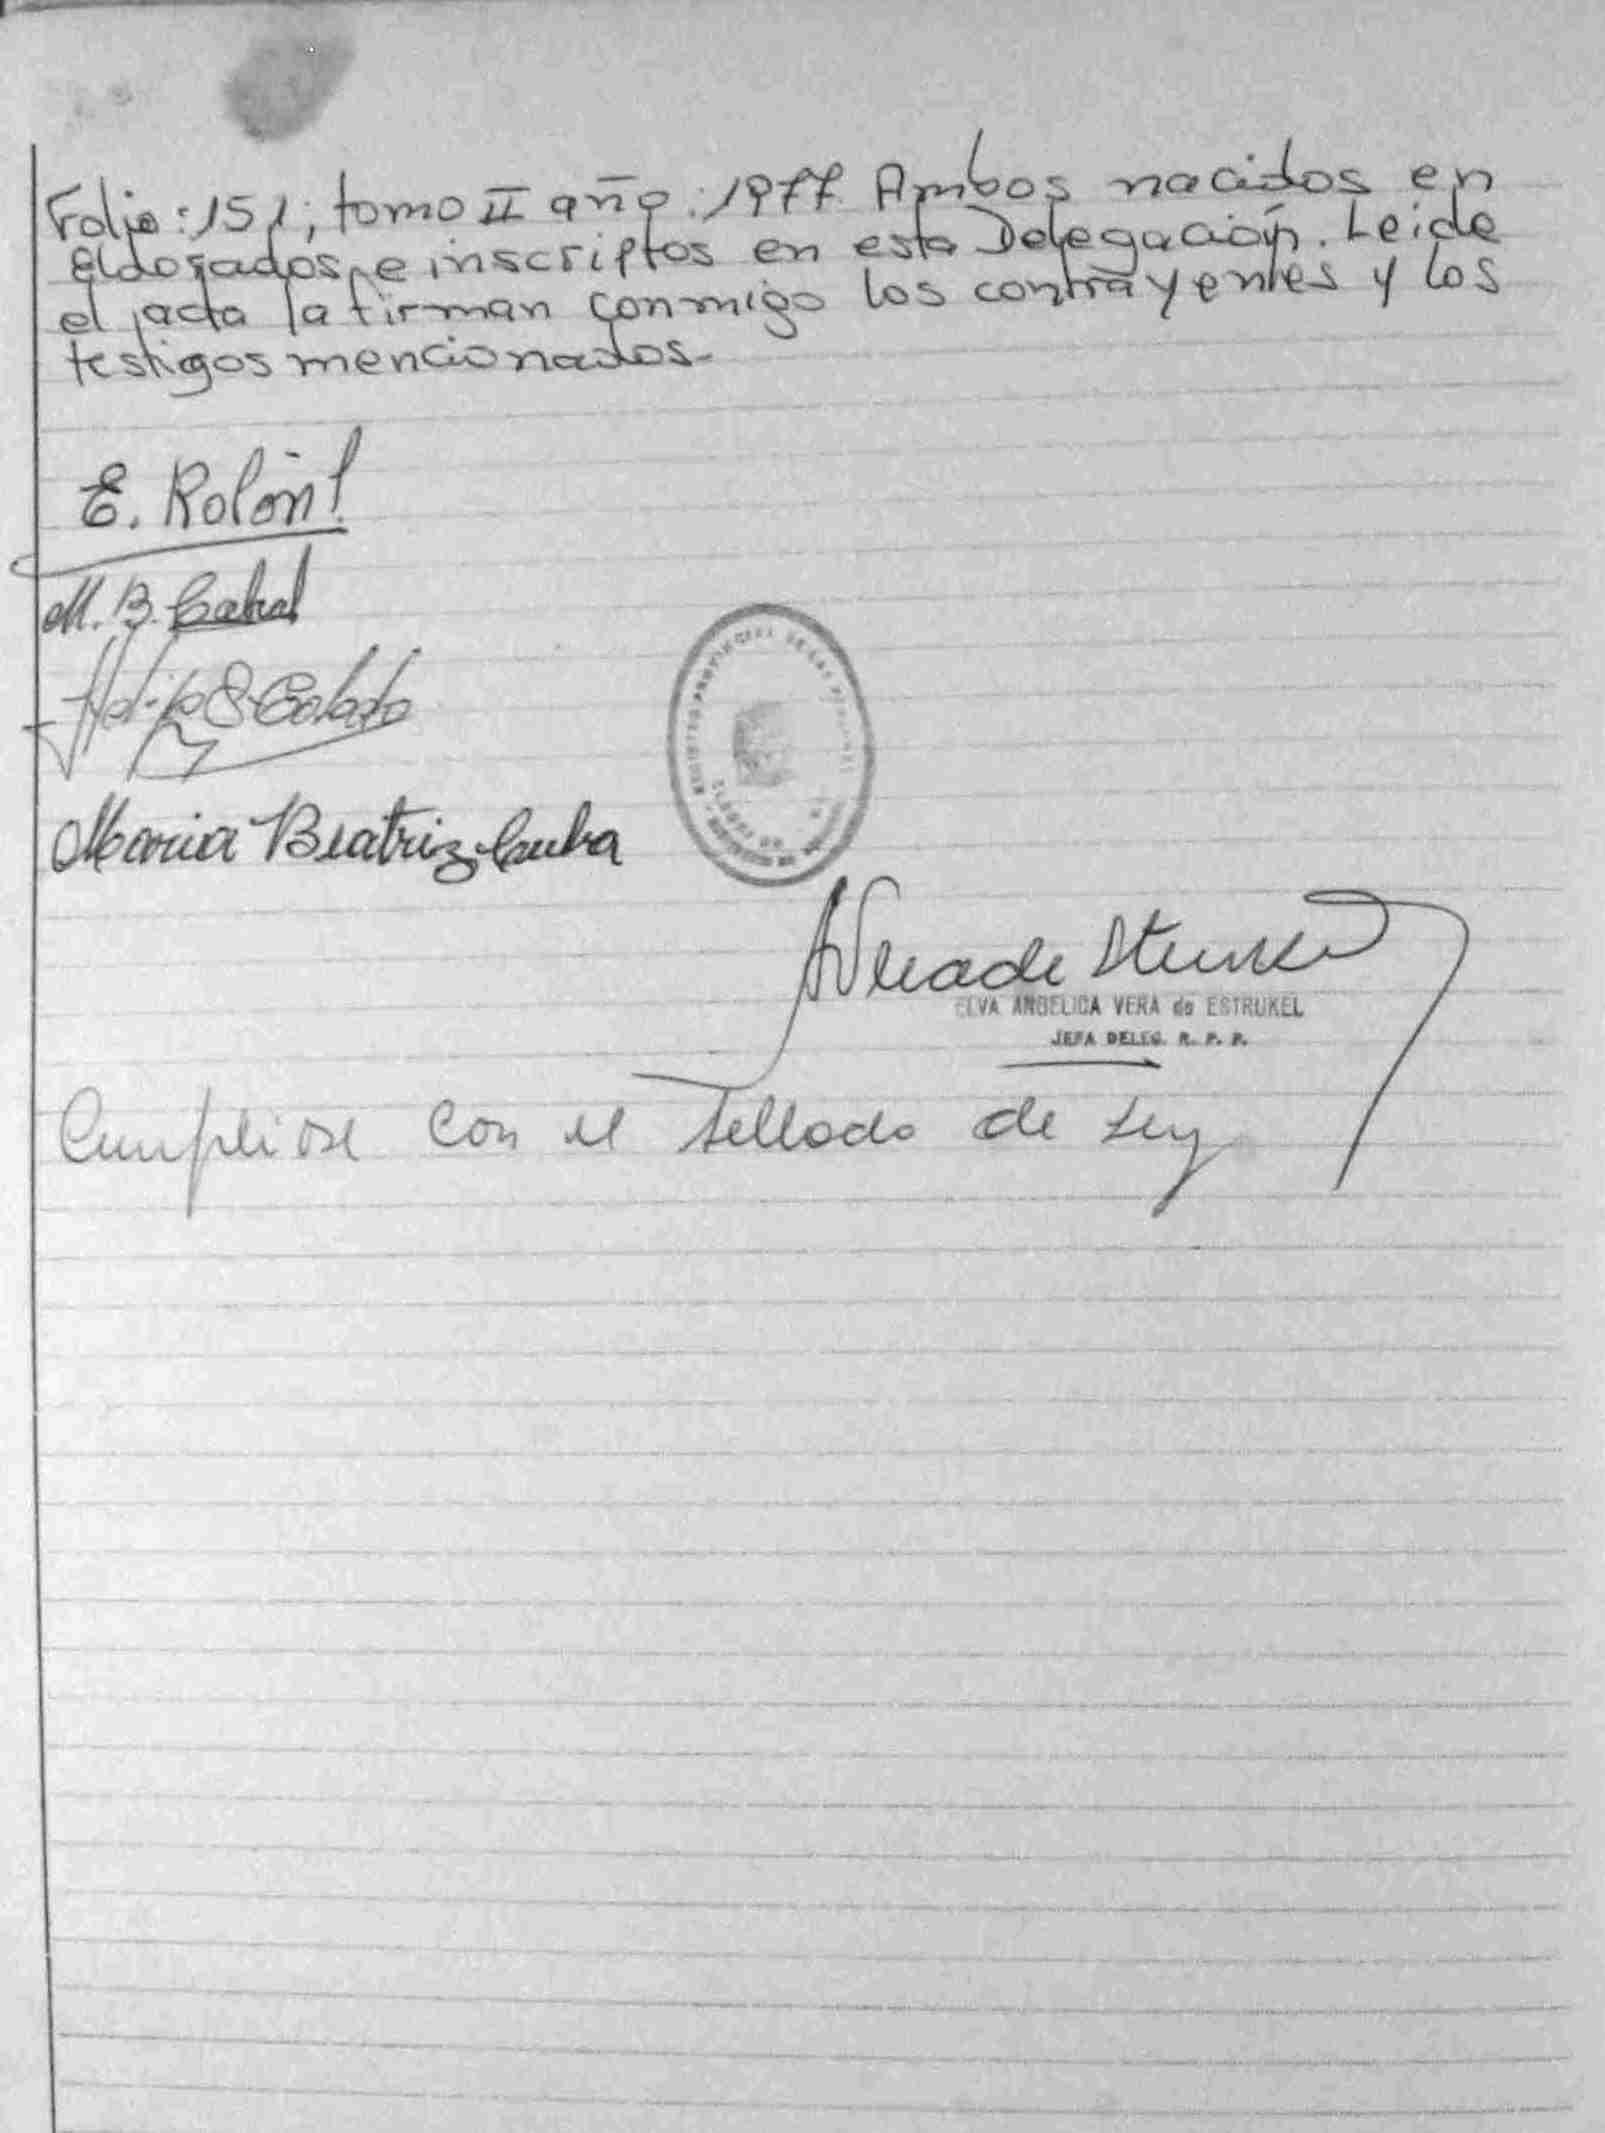 Folio: 151; tomo II año: 1977. Ambos nacidos en
Eldorados, e inscriptos en esta Delegación. Leida
el acta la firman conmigo los contrayentes y los
testigos mencionados-
E. Rolón
M. B. Cabral
Maria Beatriz
REGISTRO PROVINCIAL DE LAS PERSONAS
ELVA ANGELICA VERA de ESTRUKEL
JEFA DELEG. R. P. P.
Cumpliose con el sellado de Ley